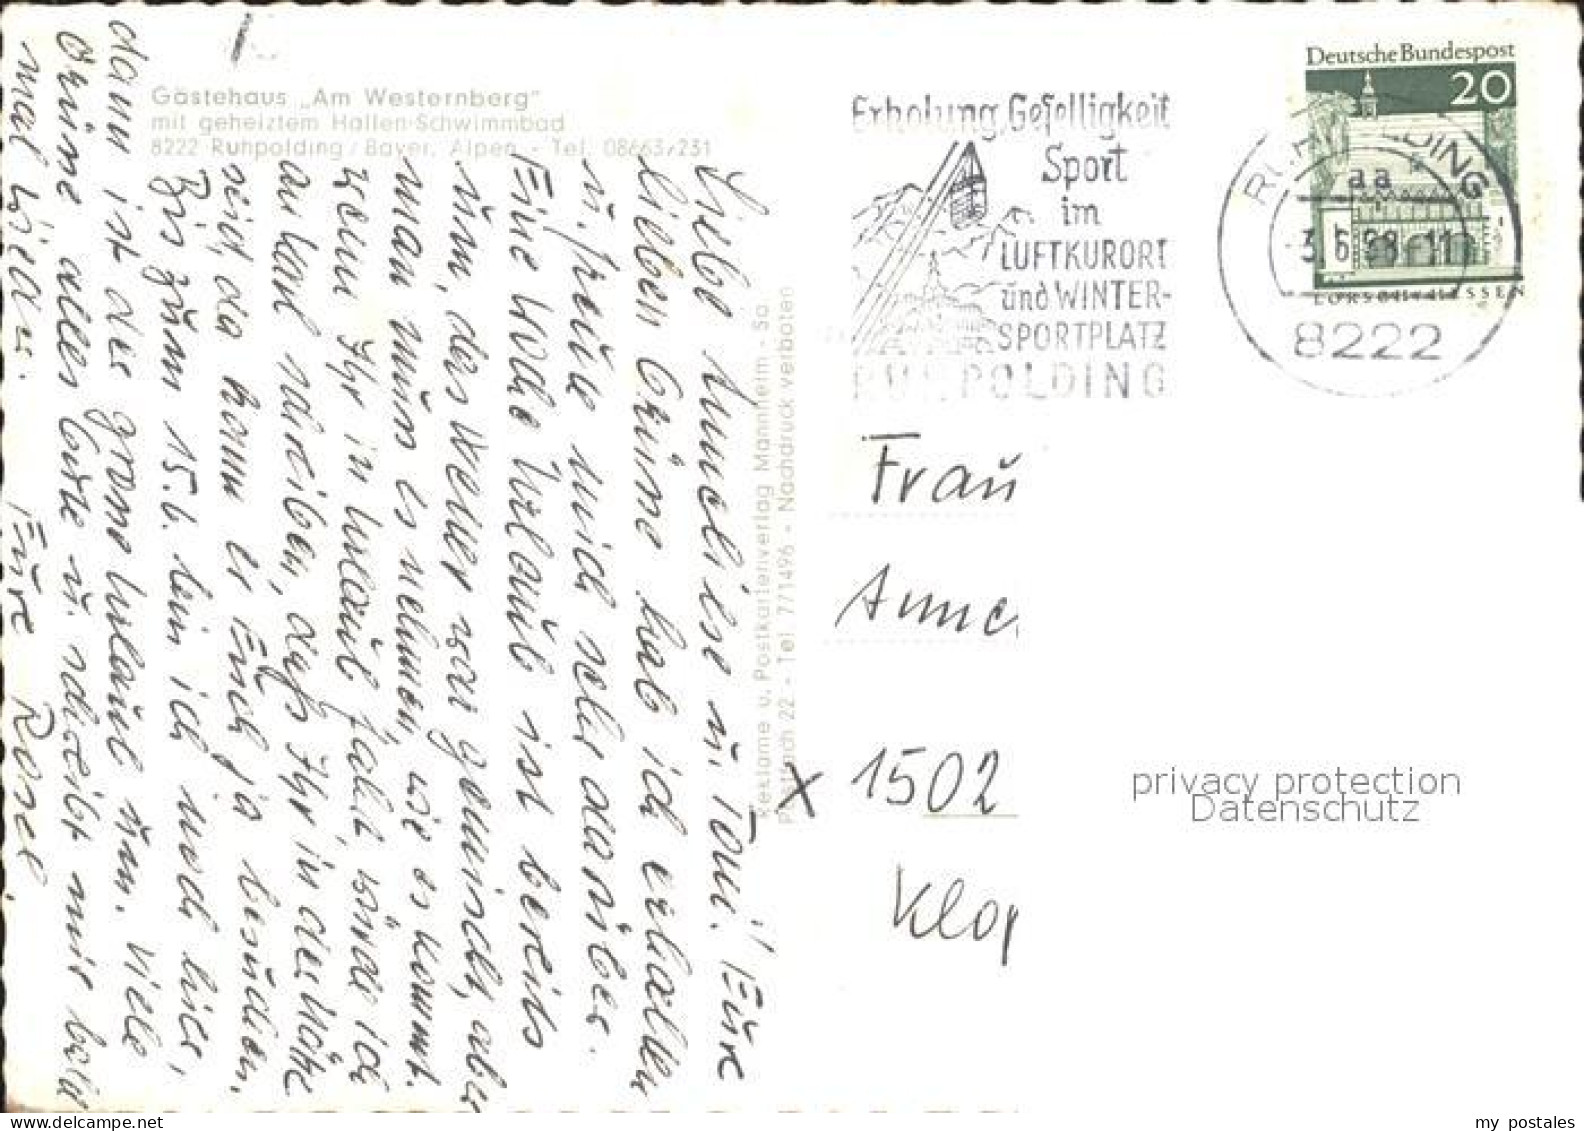 Gästehaus „Am Westernberg"
mit geheiztem Hallen-Schwimmbad
8222 Ruhpolding / Bayer. Alpen - Tel. 08663/231
Erholung, Geselligkeit
Sport
im
LUFTKURORT
und WINTER-
SPORTPLATZ
RUHPOLDING
Deutsche Bundespost
20
LORSCH/HESSEN
RUHPOLDING
aa
-3.6.68-11
8222
Liebe Anneliese u. Toni! Eure
lieben Grüsse hab ich erhalten
u. freute mich sehr darüber.
Eine Woche Urlaub ist bereits
um, das Wetter war gemischt, aber
man muss es nehmen, wie es kommt.
Wenn Ihr in Urlaub fahrt, würde ich
an Karl schreiben, dass Ihr in der Nähe
seid, da kann er Euch ja besuchen.
Bis zum 15.6. bin ich noch hier,
dann ist der grosse Urlaub um. Viele
Grüsse alles Gute u. schreibt mir bald
mal wieder. Eure Rosel.
Reklame u. Postkartenverlag Mannheim - Sa
Postfach 22 - Tel. 7/1496 - Nachdruck verboten
Frau
Anne
X 1502
Klop
privacy protection
Datenschutz
my postales